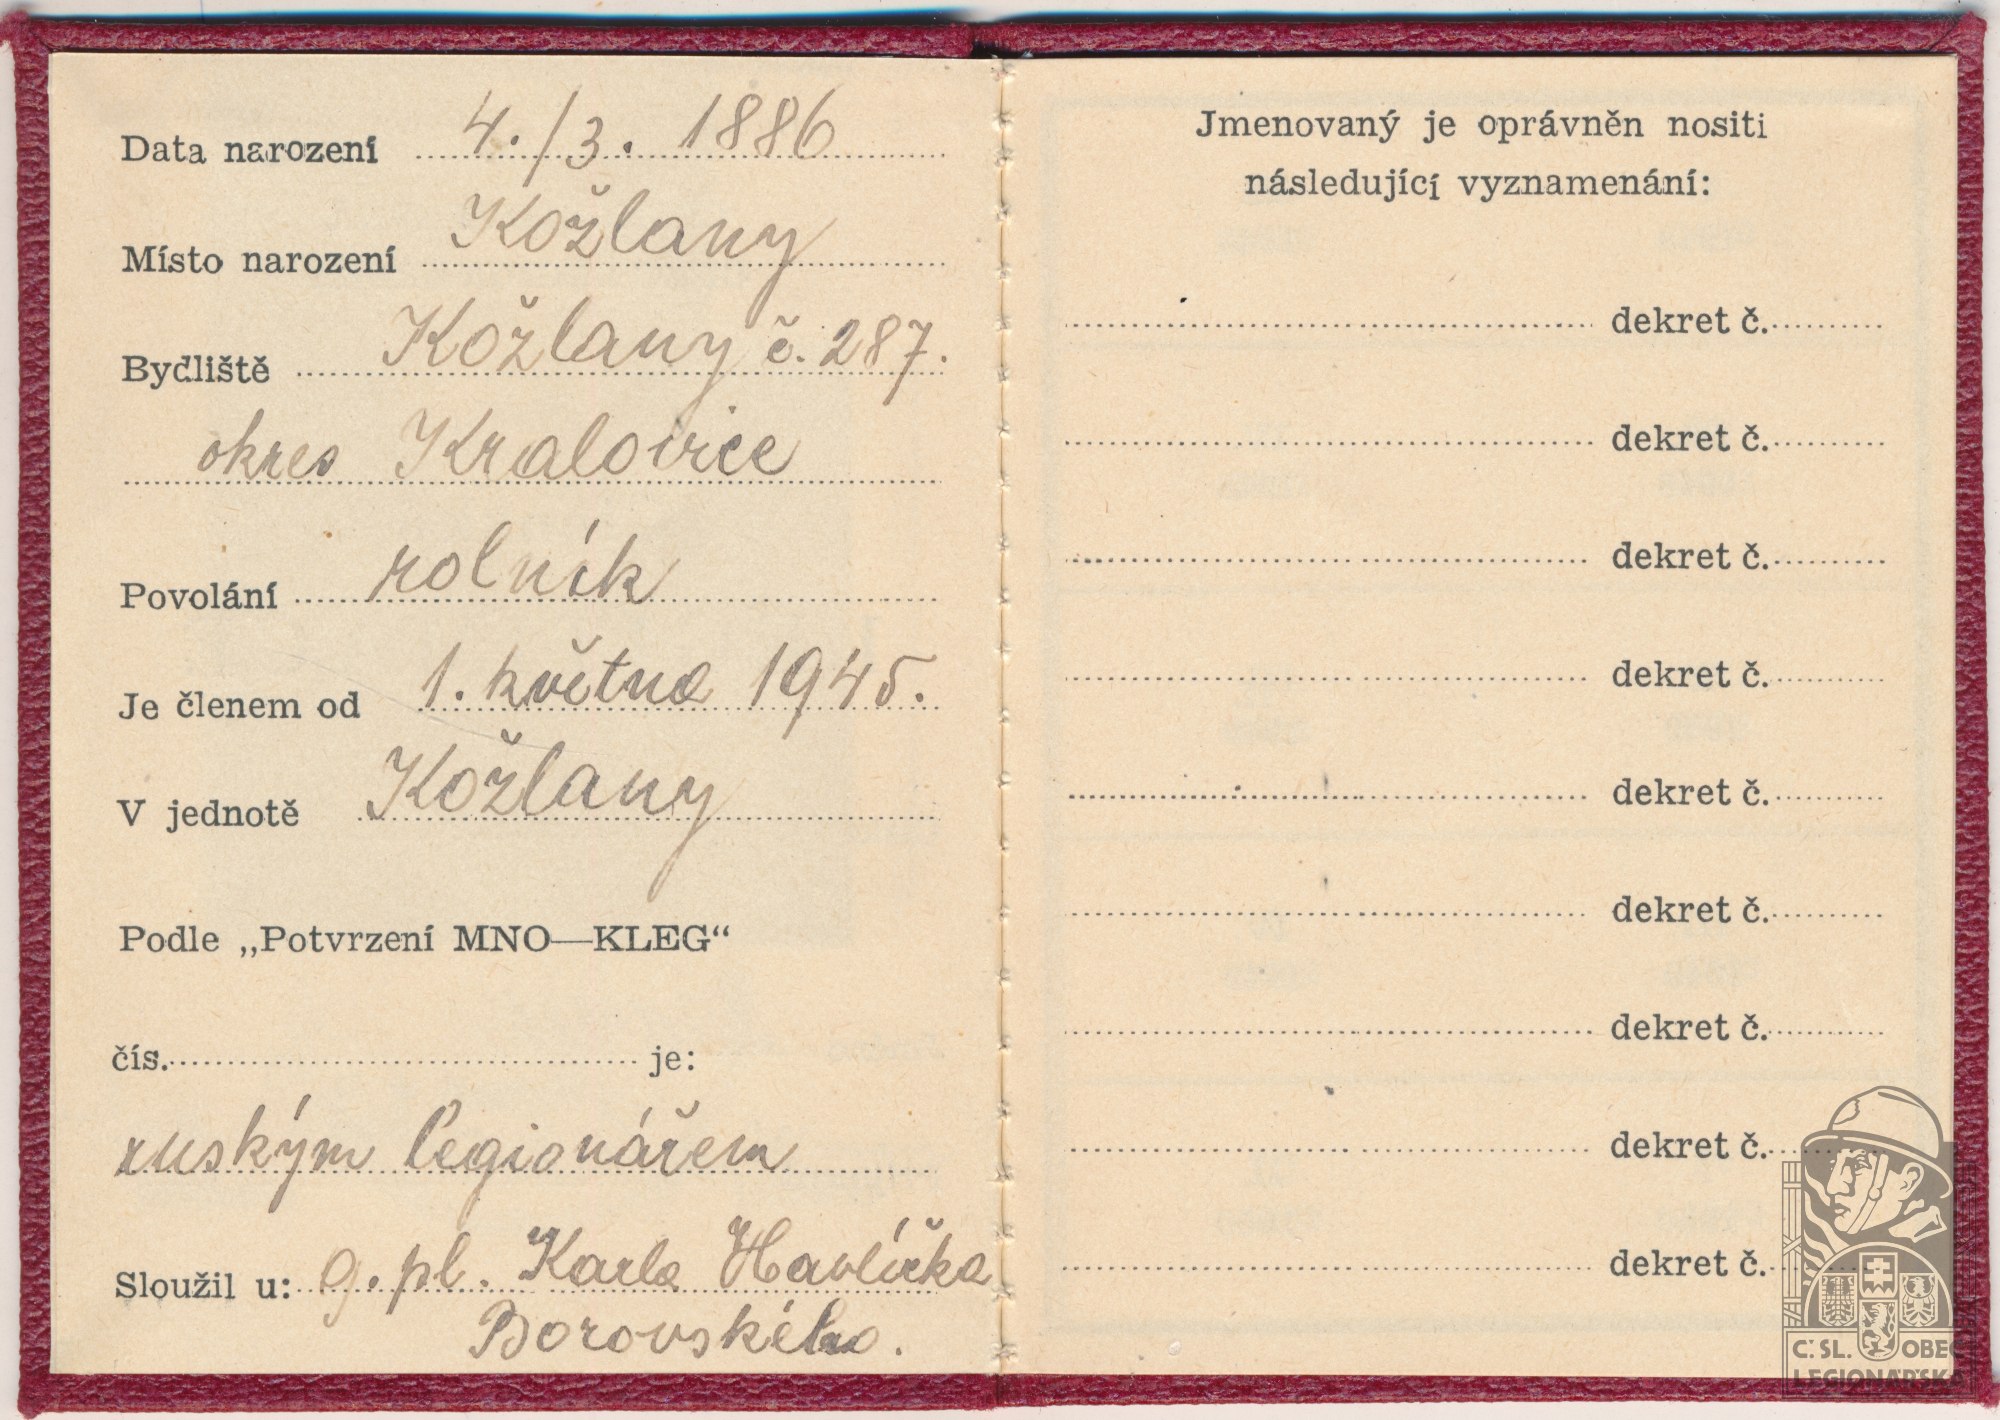 Data narození 4./3. 1886
Místo narození Kožlany
Bydliště Kožlany č. 287.
okres Kralovice
Povolání rolník
Je členem od 1. května 1945.
V jednotě Kožlany
Podle „Potvrzení MNO—KLEG“
čís. je:
ruským legionářem
Sloužil u: 9. pl. Karla Havlíčka
Borovského.
Jmenovaný je oprávněn nositi
následující vyznamenání:
dekret č.
dekret č.
dekret č.
dekret č.
dekret č.
dekret č.
dekret č.
dekret č.
dekret č.
Č.SL. OBEC
LEGIONÁŘSKÁ